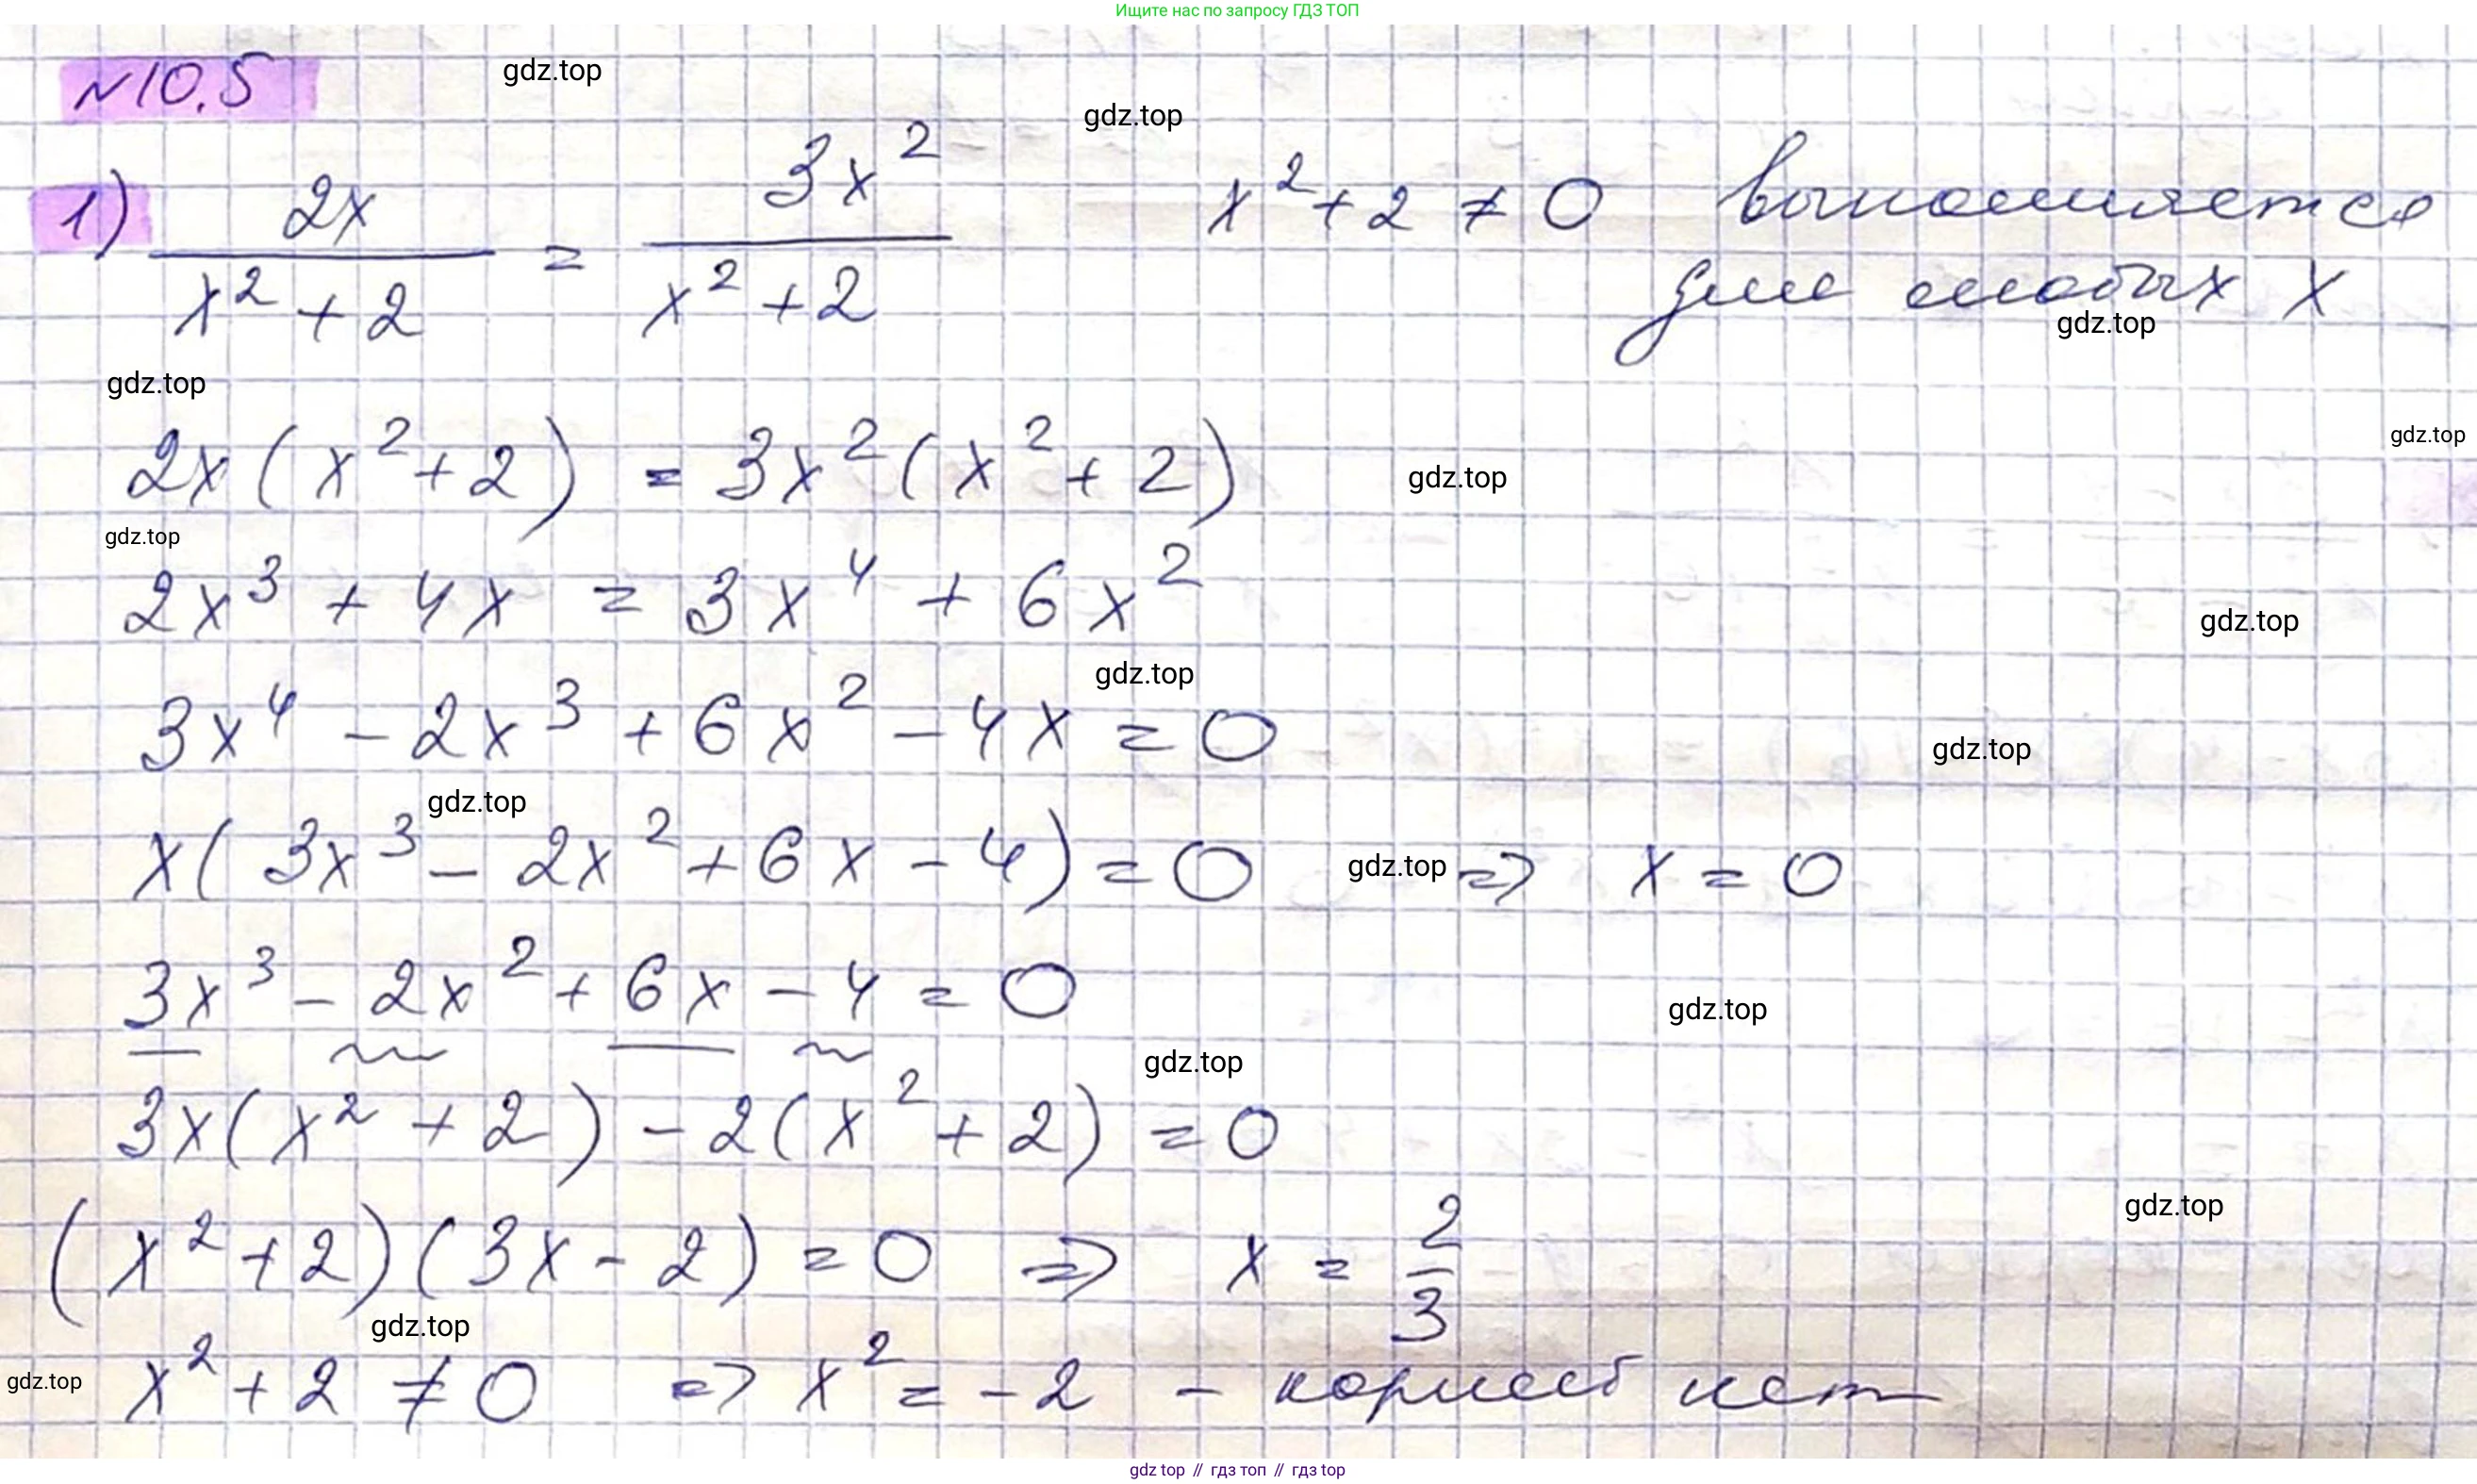 Ищите нас по запросу ГДЗ ТОП
№10.5
gdz.top
gdz.top
1) 2x / (x² + 2) = 3x² / (x² + 2)
x² + 2 ≠ 0 выполняется
для любых x
gdz.top
gdz.top
gdz.top
2x(x² + 2) = 3x²(x² + 2)
gdz.top
gdz.top
2x³ + 4x = 3x⁴ + 6x²
gdz.top
gdz.top
3x⁴ - 2x³ + 6x² - 4x = 0
gdz.top
gdz.top
x(3x³ - 2x² + 6x - 4) = 0 gdz.top => x = 0
3x³ - 2x² + 6x - 4 = 0
gdz.top
gdz.top
3x(x² + 2) - 2(x² + 2) = 0
gdz.top
(x² + 2)(3x - 2) = 0 => x = 2/3
gdz.top
gdz.top
x² + 2 ≠ 0 => x² = -2 - корней нет
gdz top // гдз топ // гдз top